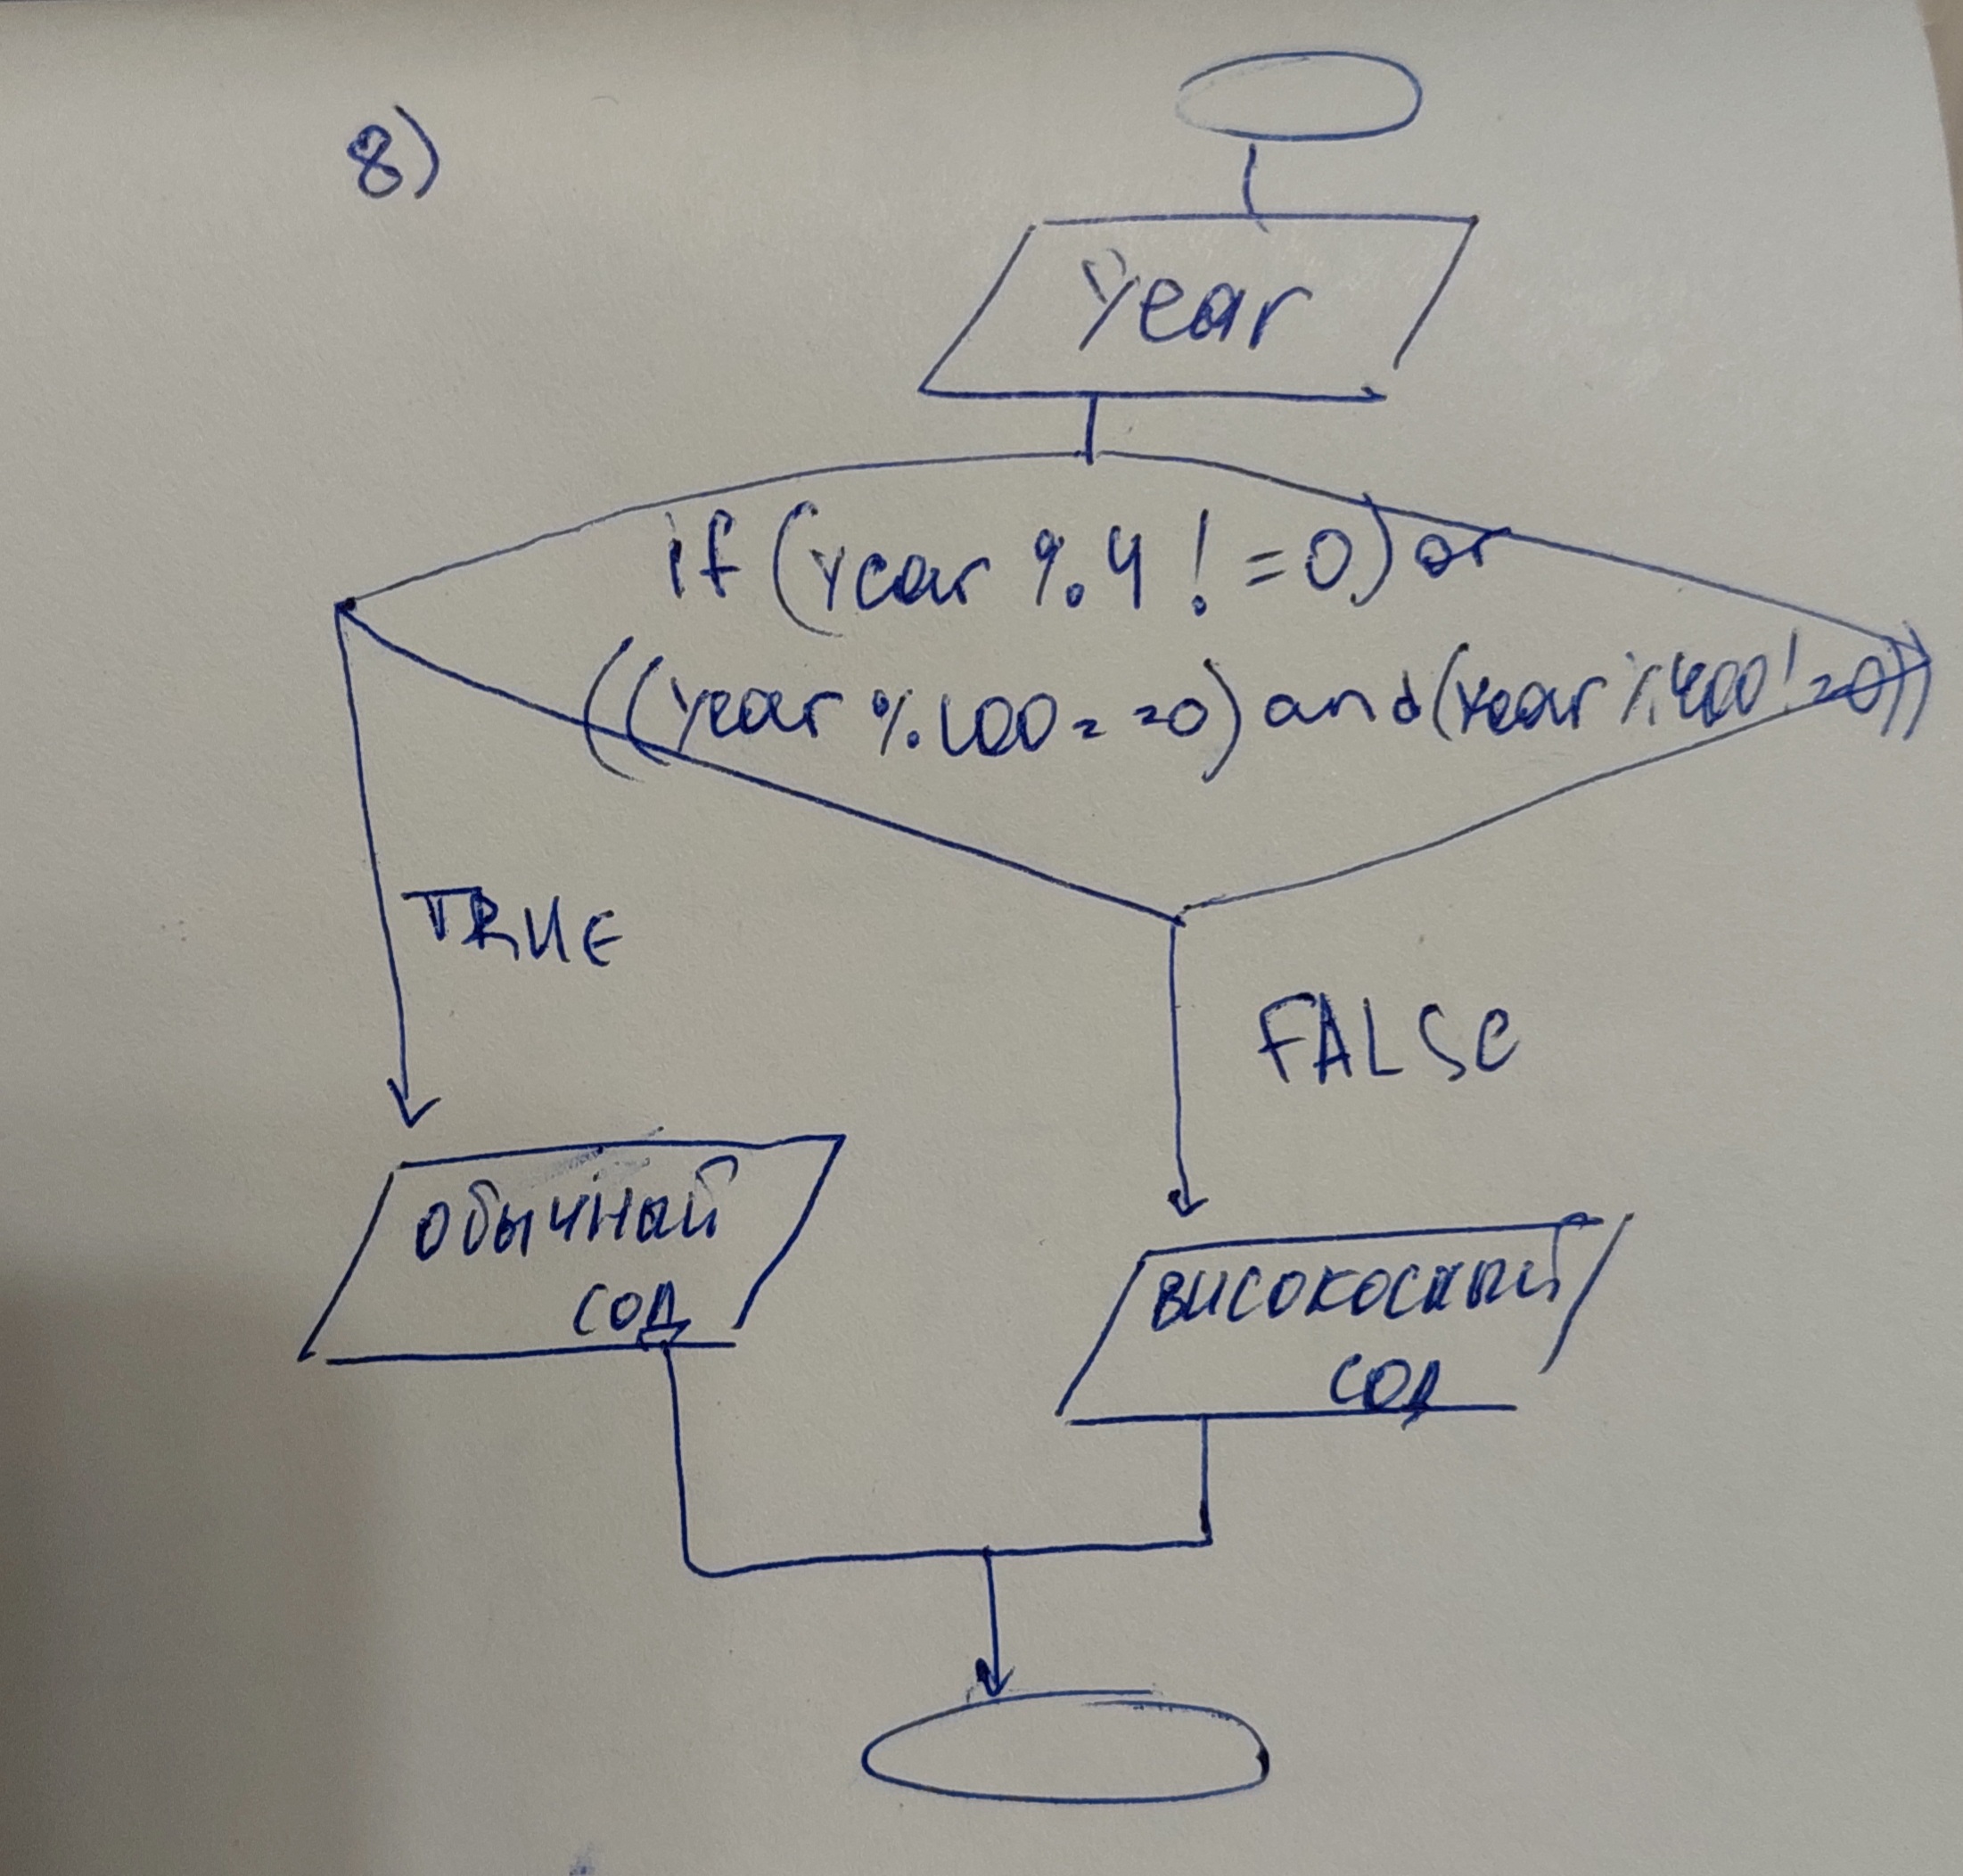 8)
year
if (year % 4 != 0) or
((year % 100 == 0) and (year % 400 != 0))
TRUE
FALSE
обычный
год
високосный
год